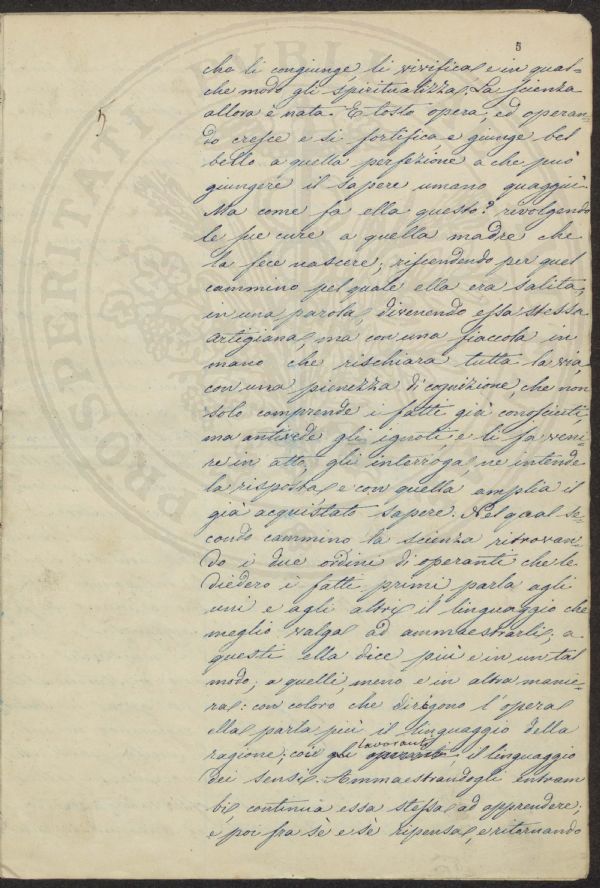 5
5
che li congiunge li vivifica, e in qual=
che modo gli spiritualizza. La scienza
allora è nata. E tosto opera, ed operan=
do cresce e si fortifica, e giunge bel
bello a quella perfezione a che può
giungere il sapere umano quaggiù.
Ma come fa ella questo? rivolgendo
le sue cure a quella madre che
la fece nascere; riscendendo per quel
cammino pel quale ella era salita;
in una parola, divenendo essa stessa
artigiana, ma con una fiaccola in
mano che rischiara tutta la via,
con una pienezza di cognizione, che non
solo comprende i fatti già conosciuti,
ma antivede gli ignoti, e li fa veni=
re in atto, gli interroga, ne intende
la risposta, e con quella amplia il
già acquistato sapere. Nel qual se=
condo cammino la scienza ritrovan=
do i due ordini di operanti che le
diedero i fatti primi parla agli
uni e agli altri il linguaggio che
meglio valga ad ammaestrarli; a
questi ella dice più e in un tal
modo; a quelli, meno e in altra manie=
ra: con coloro che dirigono l'opera
ella parla più il linguaggio della
ragione; coi lavoranti, il linguaggio
dei sensi. Ammaestrandogli entram
bi, continua essa stessa ad apprendere;
e poi fra sè e sè ripensa, e ritornando
PROSPERITATI PUBLI